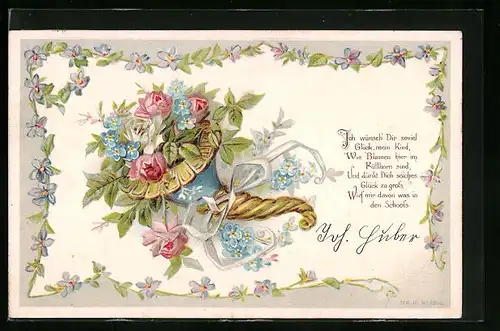 Ich wünsch Dir soviel
Glück, mein Kind,
Wie Blumen hier im
Füllhorn sind,
Und dünkt Dich solches
Glück zu groß,
Wirf mir davon was in
den Schooß
Joh. Huber